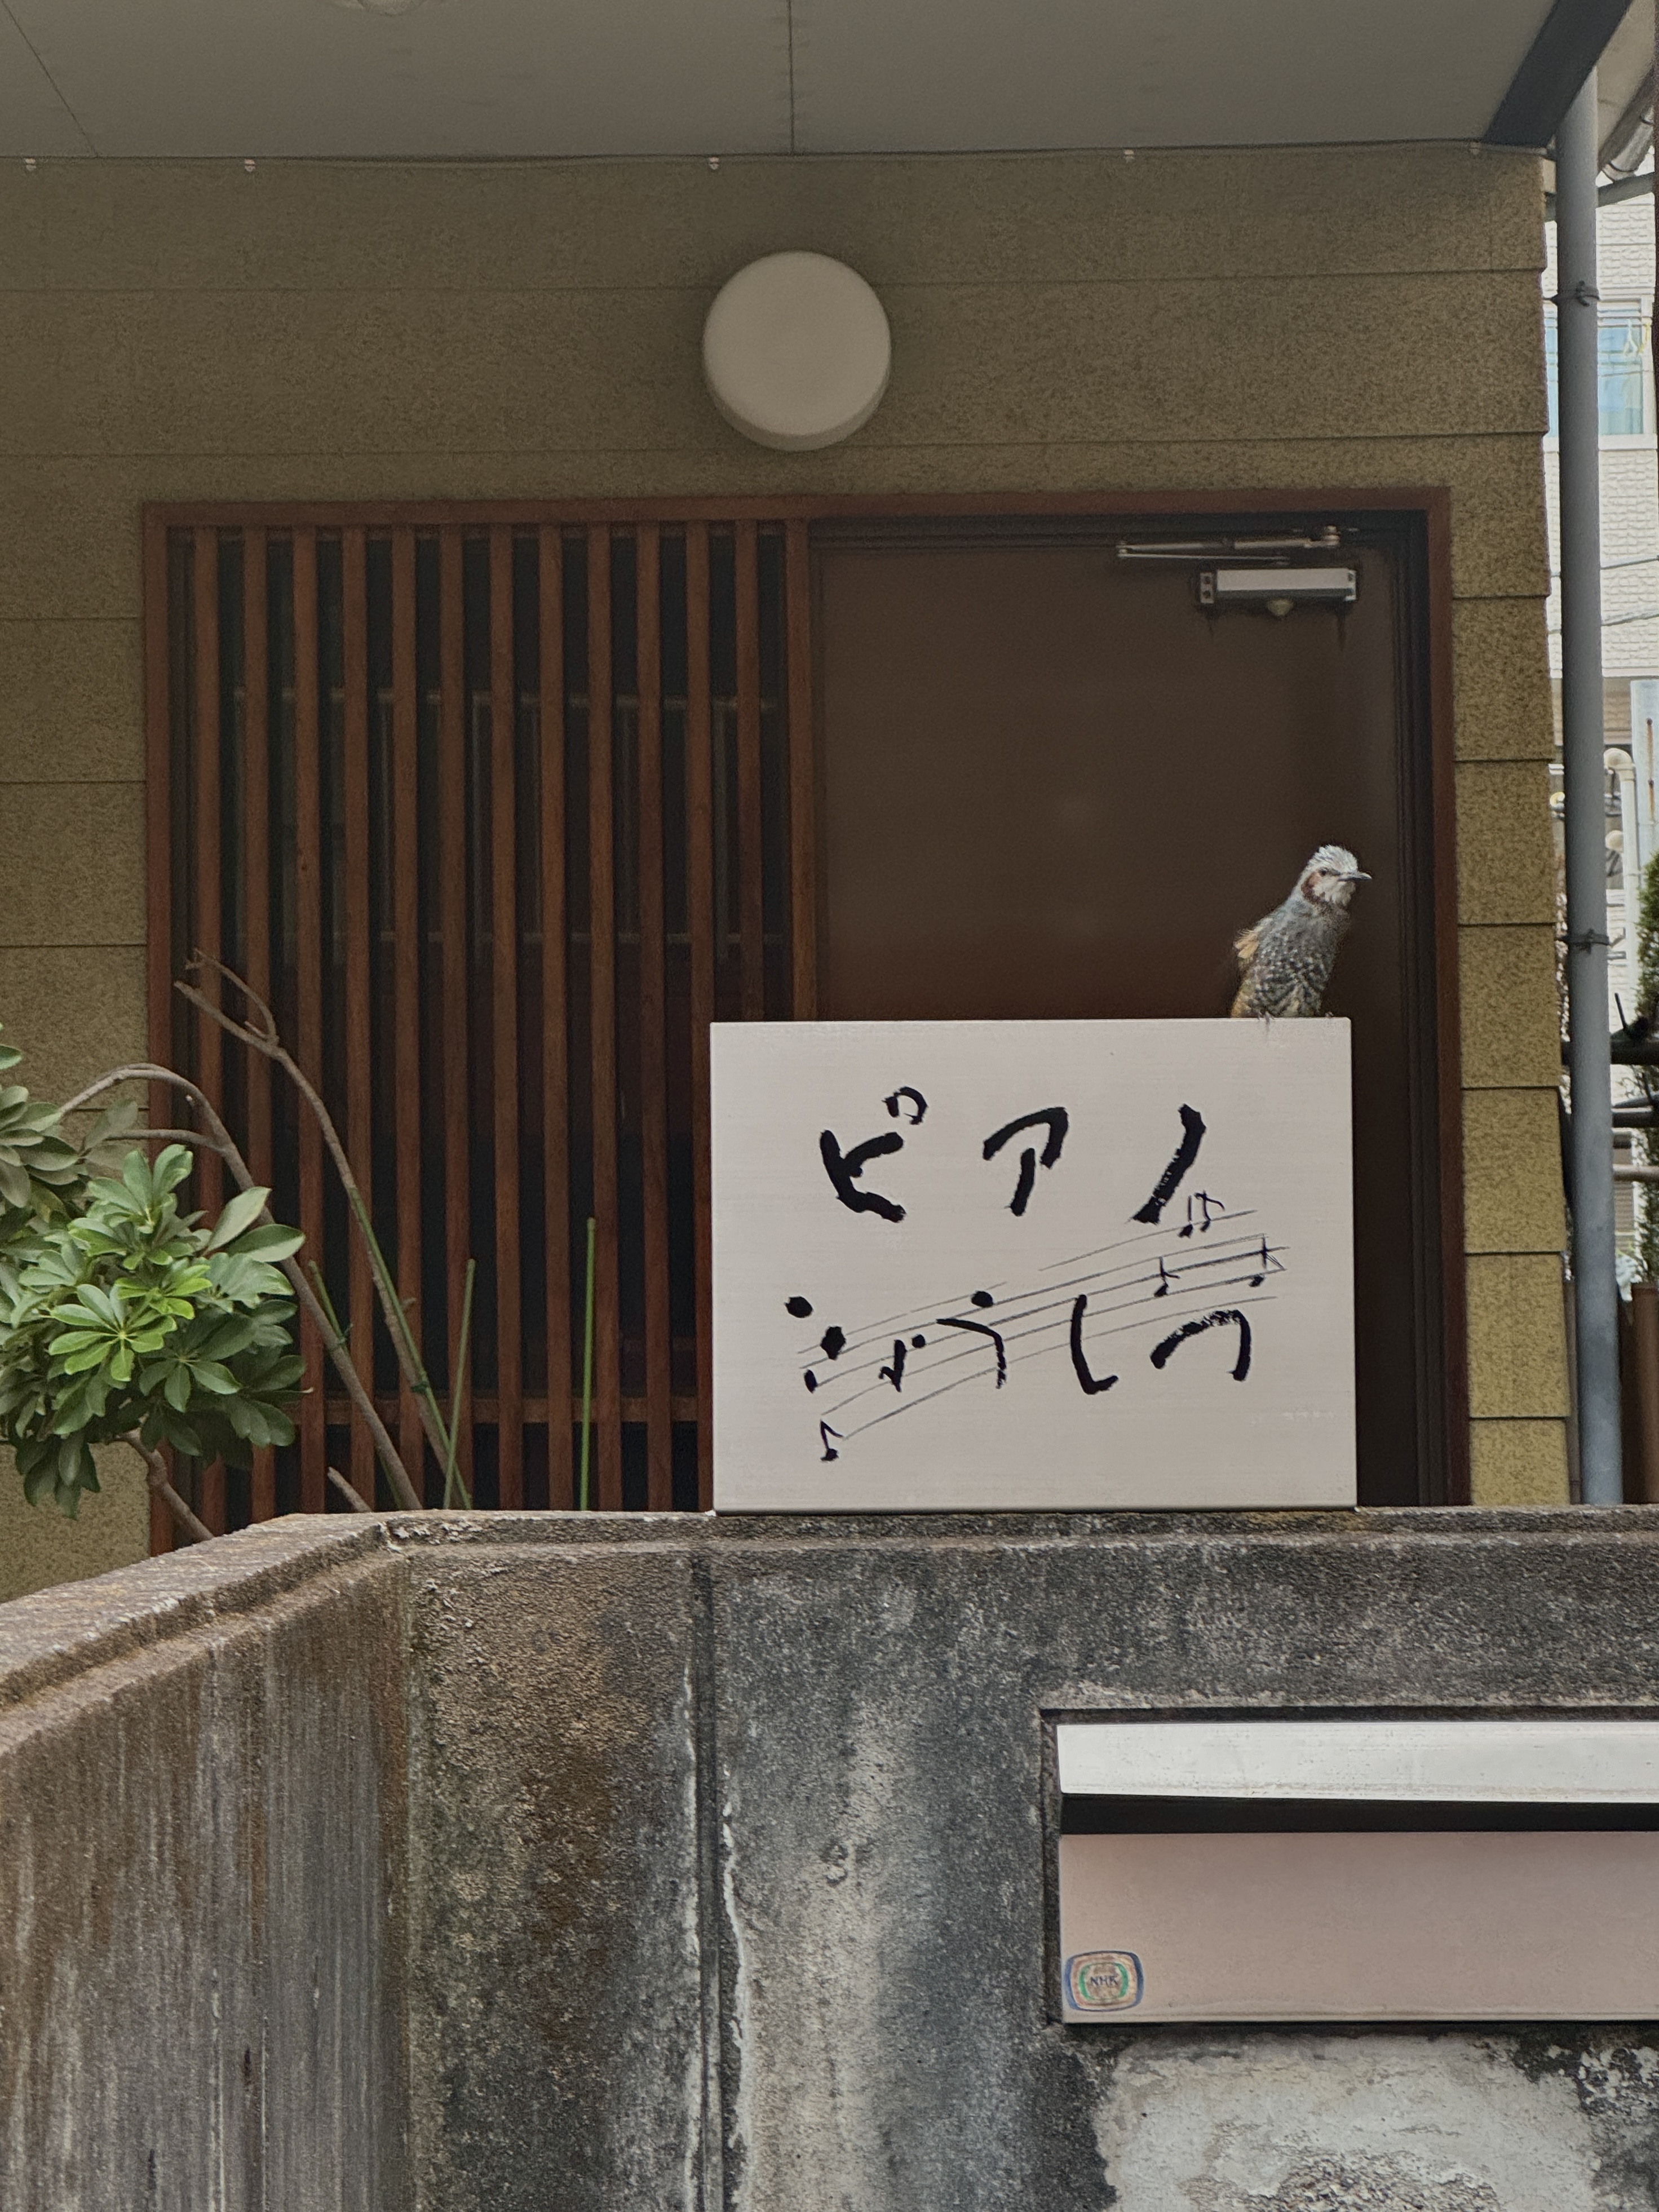 ピアノ
きょうしつ
NHK